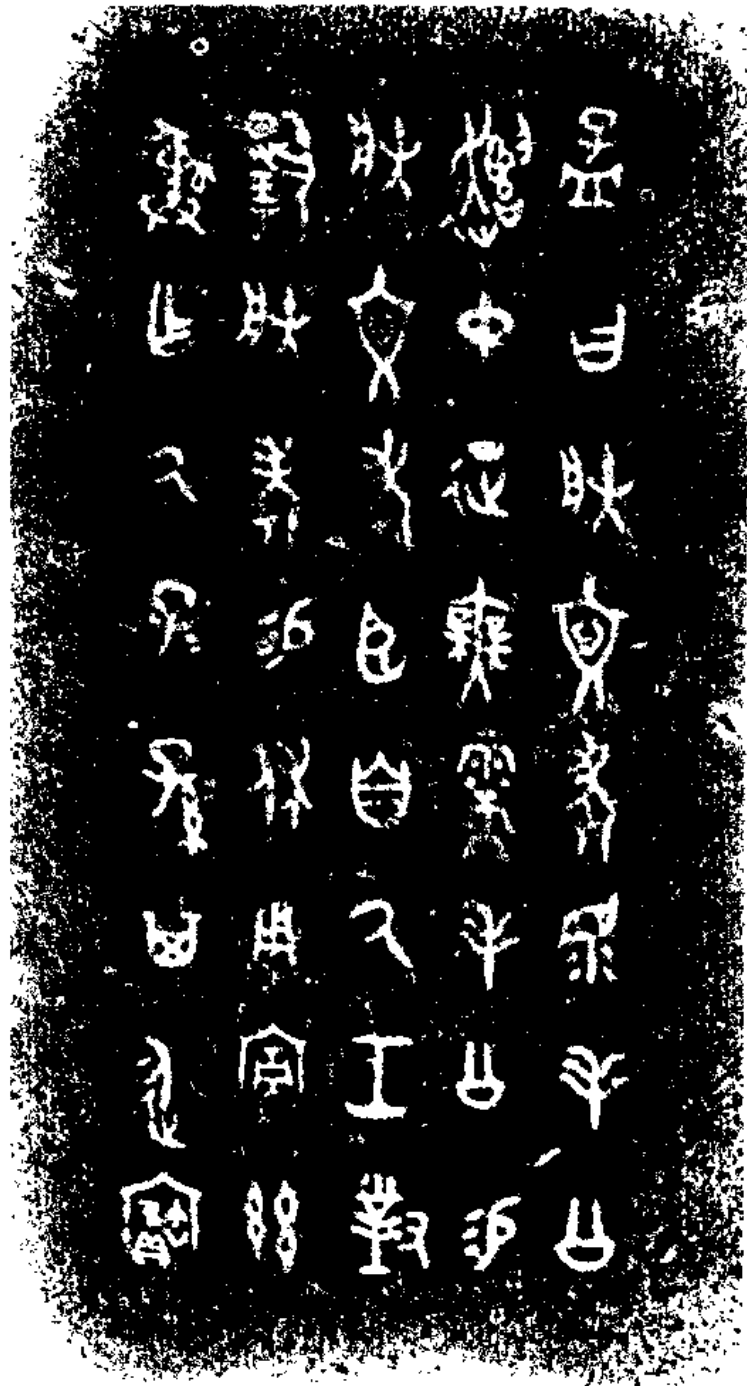 孟曰朕文考眔毛公
遣中征無需毛公易
朕文考臣自厥工對
揚朕考易休用宣茲
彝乍厥子子孫孫其永寶